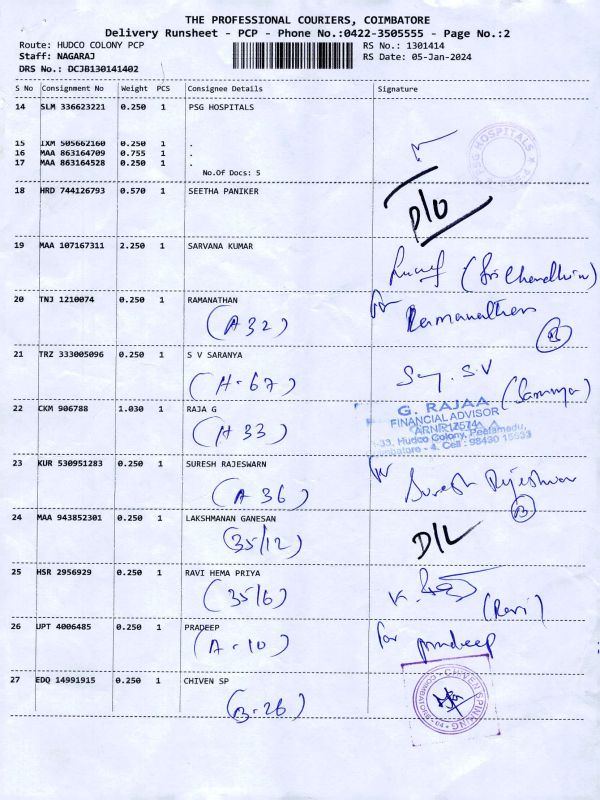 THE PROFESSIONAL COURIERS, COIMBATORE
Delivery Runsheet - PCP - Phone No.:0422-3505555 - Page No.:2
Route: HUDCO COLONY PCP RS No.: 1301414
Staff: NAGARAJ RS Date: 05-Jan-2024
DRS No.: DCJB130141402
S No Consignment No Weight PCS Consignee Details Signature
14 SLM 336623221 0.250 1 PSG HOSPITALS
PSG HOSPITALS
15 IXM 505662160 0.250 1 .
16 MAA 863164709 0.755 1 .
17 MAA 863164528 0.250 1 .
No.Of Docs: 5
18 HRD 744126793 0.570 1 SEETHA PANIKER
D/U
19 MAA 107167311 2.250 1 SARVANA KUMAR
20 TNJ 1210074 0.250 1 RAMANATHAN
(A 32) for Ramanathan
21 TRZ 333005096 0.250 1 S V SARANYA
(H-67) S.V
22 CKM 906788 1.030 1 RAJA G
(A 33)
G. RAJAA
FINANCIAL ADVISOR
ARNR17574
-33, Hudco Colony, Peelamedu,
- 4. Cell : 98430 15533
23 KUR 530951283 0.250 1 SURESH RAJESWARN
(A 36) Suresh
24 MAA 943852301 0.250 1 LAKSHMANAN GANESAN
(35/12) D/L
25 HSR 2956929 0.250 1 RAVI HEMA PRIYA
(35/6) (Ravi)
26 UPT 4006485 0.250 1 PRADEEP
(A-10) for pradeep
27 EDQ 14991915 0.250 1 CHIVEN SP
(B-26)
CHIVEN SPINNING